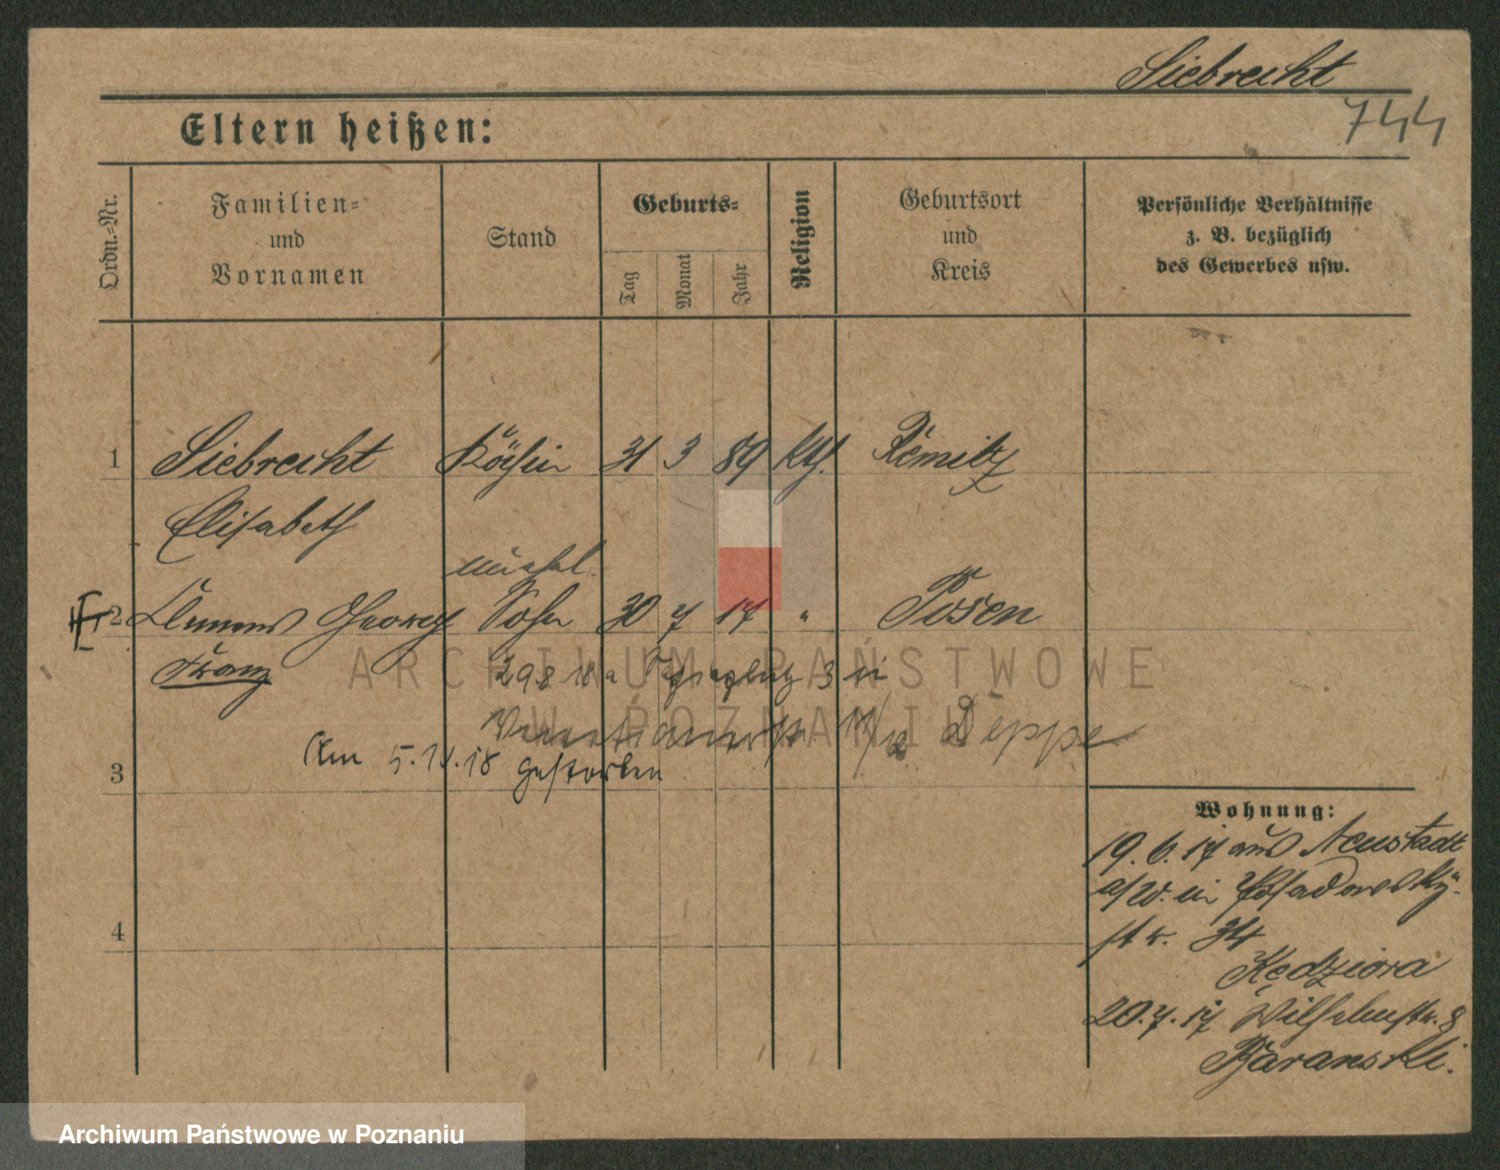 Siebrecht
744
Eltern heißen:
Ordn.-Nr.
Familien-
und
Vornamen
Stand
Geburts-
Tag
Monat
Jahr
Religion
Geburtsort
und
Kreis
Persönliche Verhältnisse
z. B. bezüglich
des Gewerbes usw.
1 Siebrecht Köchin 31 3 89 kth. Kemitz
Elisabeth
unehel.
2 Clemens Georg Sohn 30 7 17 " Posen
Franz
29 8 18 a 3 in
Deppe
Am 5.IV.18 gestorben
3
4
Wohnung:
19.6.17 aus Neustadt
a/W. in Posadowsky-
str. 34
Kędziora
20.7.17 Wilhelmstr. 8
Baranski.
ARCHIWUM PAŃSTWOWE
W POZNANIU
Archiwum Państwowe w Poznaniu